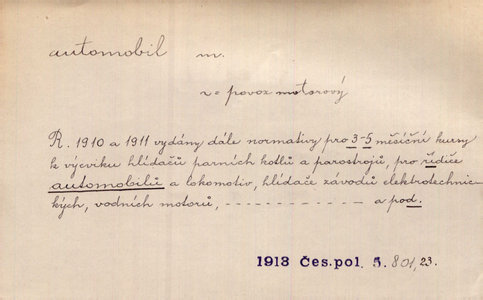 automobil m.
v = povoz motorový
R. 1910 a 1911 vydány dále normativy pro 3-5 měsíční kursy
k výcviku hlídačů parních kotlů a parostrojů, pro řidiče
automobilů a lokomotiv, hlídače závodů elektrotechnic
kých, vodních motorů, - - - - - - - - - - a pod.
1913 Čes. pol. 5. 801, 23.